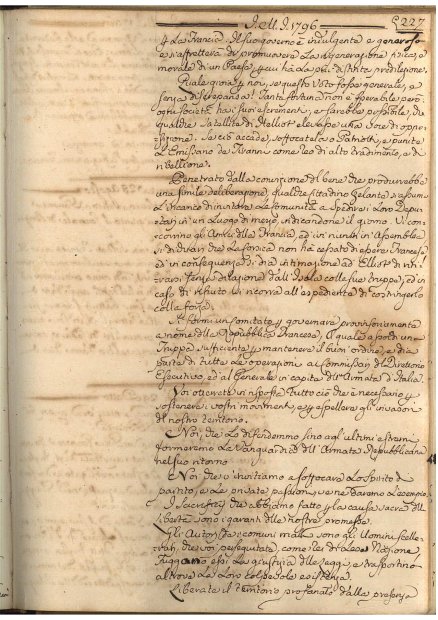 1796 227
La Francia. Il suo governo è indulgente e generoso
e s'affretterà di promuovere la rigenerazione fisica, e
morale di un Paese, per cui hà la più distinta predilezione.
Quale gioia per noi, se questo Voto fosse generale, e
senza discrepanza! Tanta fortuna non è sperabile però
ogni società ha i suoi escrementi, e sarebbe possibile, che
qualche satellite di Elliot elevasse una voce di oppo-
sizione. Se ciò accade, soffocatela o Patrioti, e punite
l'Emissario de Tiranni come reo di alto tradimento, e di
ribellione.
Penetrato dalla convinzione del bene che produrrebbe
una simile deliberazione, qualche cittadino zelante assuma
l'incarico d'invitare le Comunità a spedire i loro Depu-
tati in un Luogo di mezzo, indicandone il giorno. Vi con-
corrino gli Amici della Francia, ed ivi riuniti in Assemblea
si dichiari che la Corsica non hà cessato di essere Francese
ed in conseguenza si dia intimazione ad Elliot di riti-
rarsi senza dilazione dall'Isola colle sue truppe, ed in
caso di rifiuto si ricorra all'espediente di costringerlo
colla forza.
Si formi un Comitato per governare provvisoriamente
a nome della Repubblica Francese, il quale assoldi una
Truppa sufficiente per mantenere il buon ordine, e dia
parte di tutte le operazioni ai Commissari del Direttorio
Esecutivo, ed al Generale in capite dell'Armata d'Italia.
Voi otterrete in risposta tutto ciò che è necessario per
sostenere i vostri movimenti, e per espellere gli invasori
del nostro territorio.
Noi, che lo difendemmo sino agli ultimi estremi
formeremo la Vanguardia dell'Armata Repubblicana
nel suo ritorno
Noi che v'invitiamo a soffocare lo spirito di
partito, e le private passioni, ve ne daremo l'esempio.
I sacrifizj che abbiamo fatto per la causa sacra della
Libertà sono i garanti delle nostre promesse.
Gli Autori de comuni mali sono gli Uomini scelle-
rati, che voi perseguitate come rei di Lesa Nazione
Fuggano essi la giustizia delle leggi, e trasportino
altrove la loro colpevole esistenza.
Liberate il territorio profanato dalla presenza